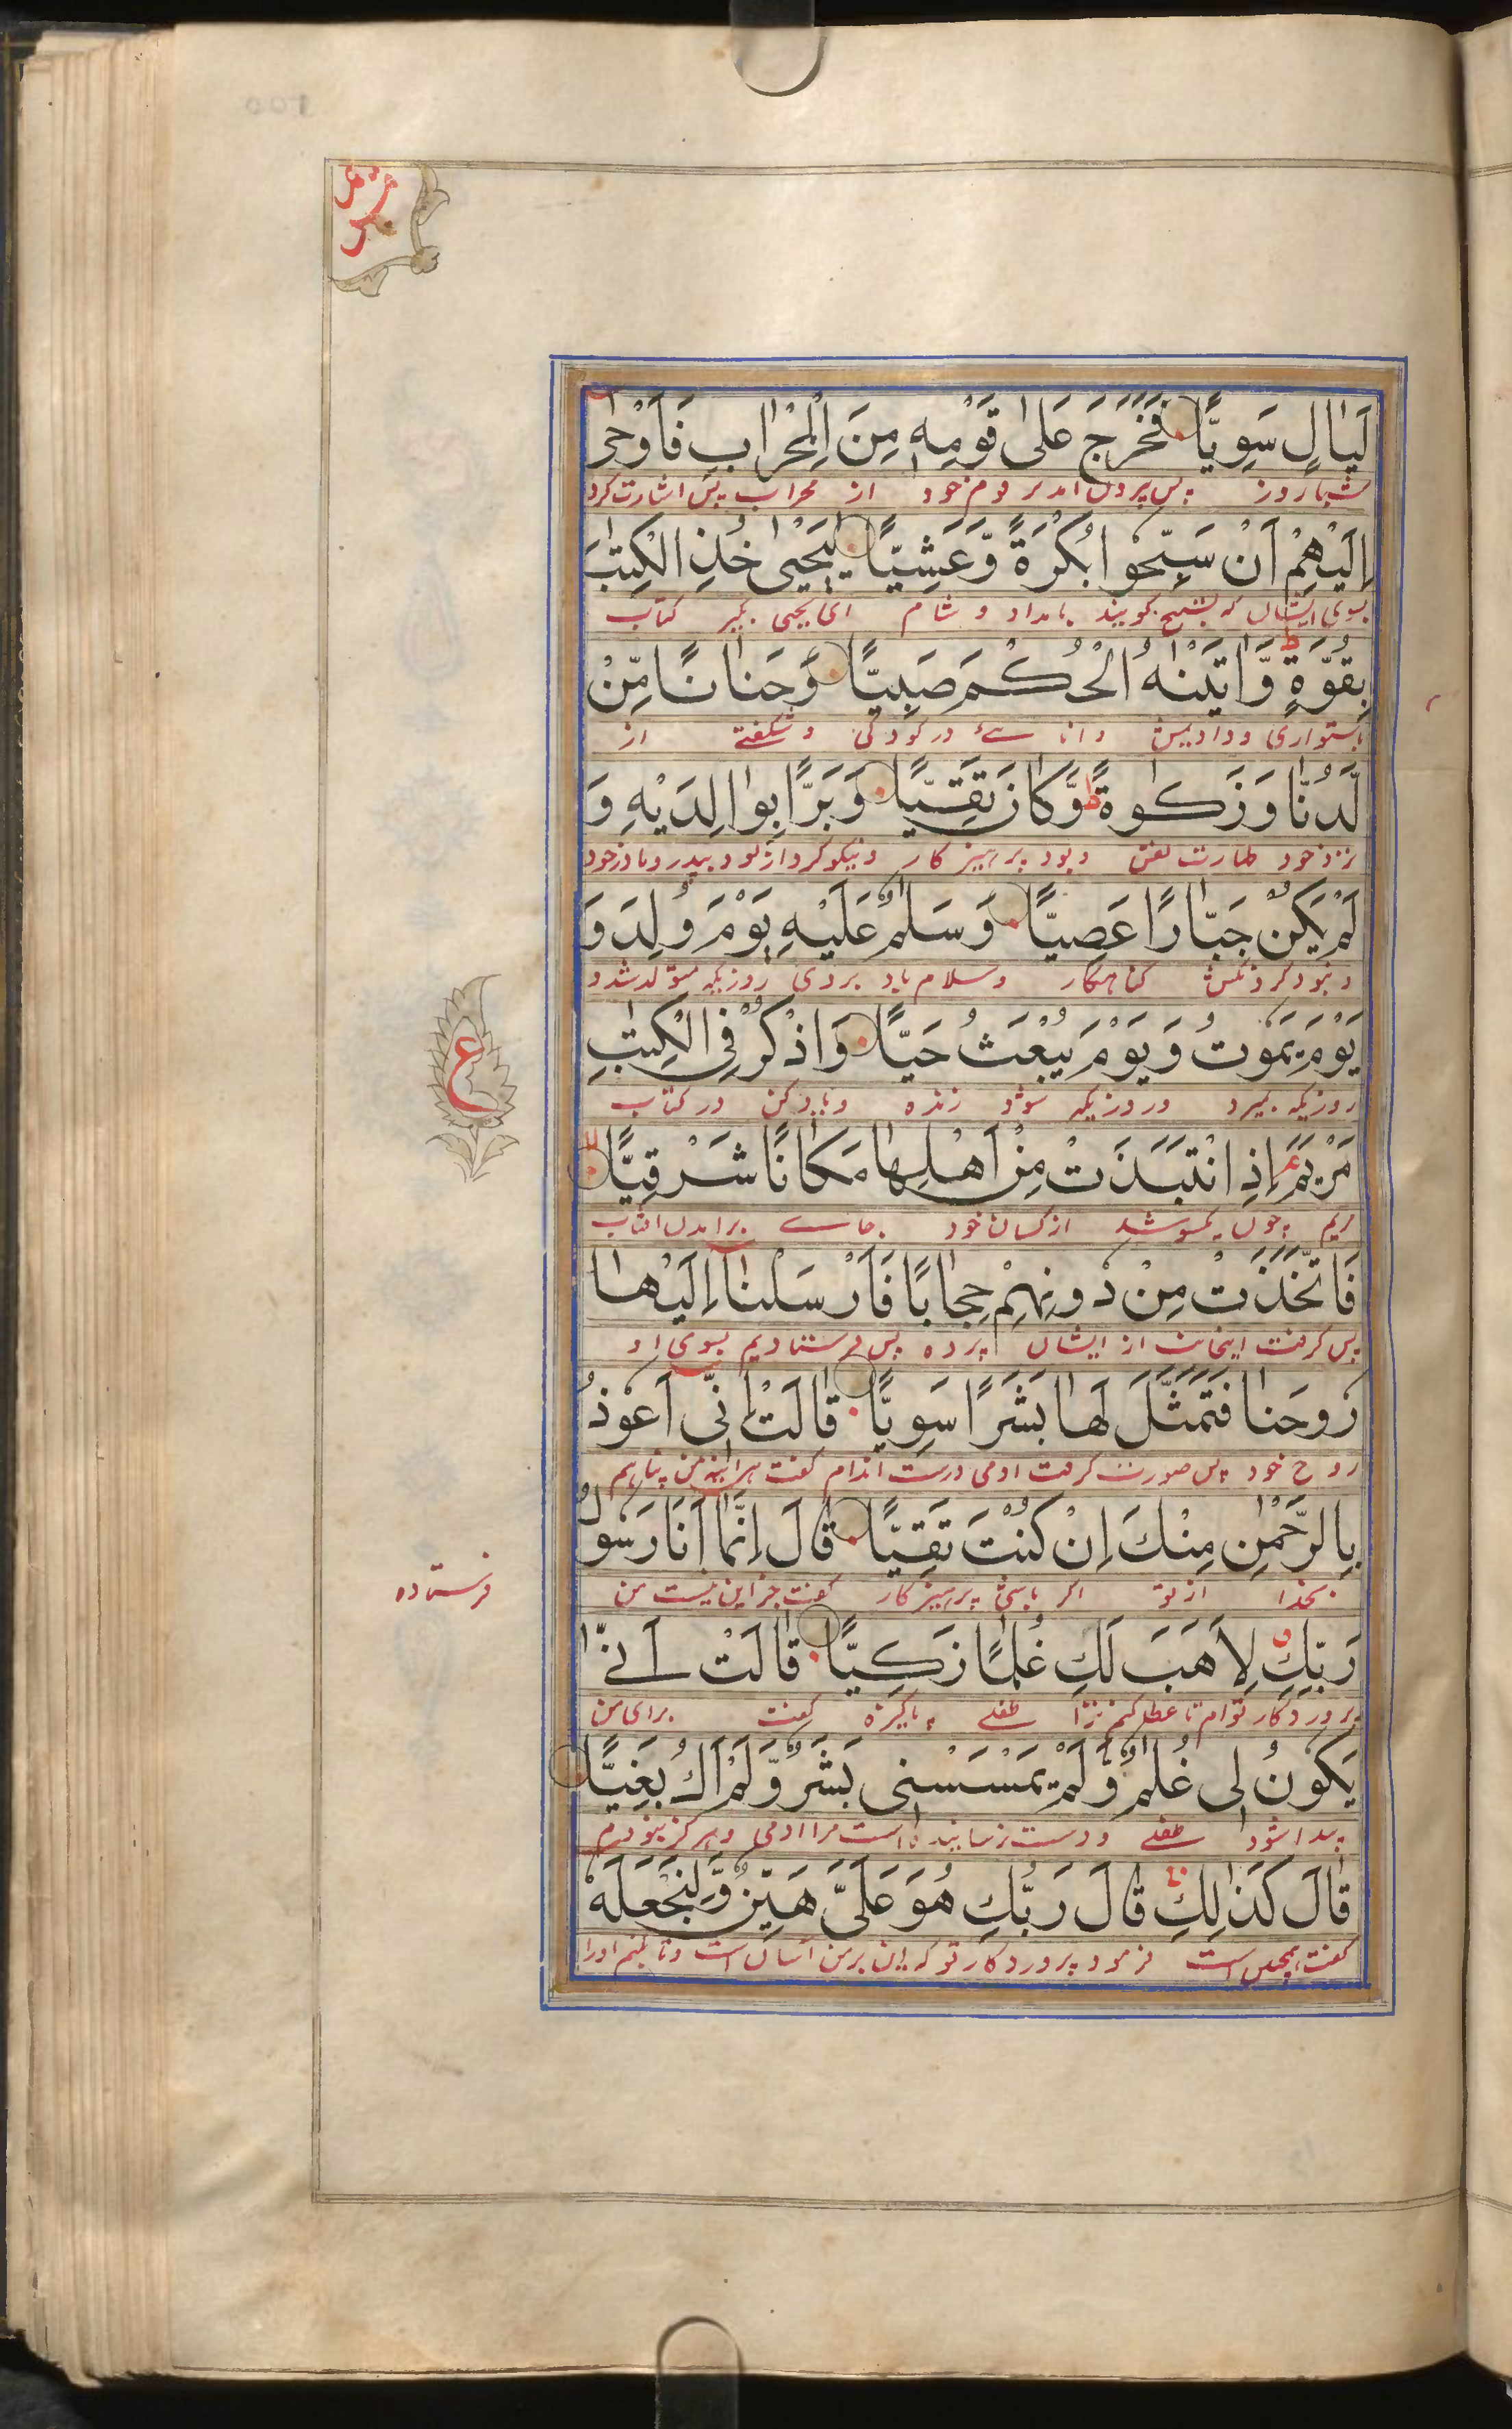 لَيَالٍ سَوِيًّا فَخَرَجَ عَلىٰ قَوْمِهٖ مِنَ الْمِحْرَابِ فَاَوْحىٰ
شبانروز پس بیرون امد بر قوم خود از محراب پس اشارت کرد
اِلَيْهِمْ اَنْ سَبِّحُوا بُكْرَةً وَّعَشِيًّا يٰيَحْيىٰ خُذِ الْكِتٰبَ
بسوی ایشان که تسبیح کویید بامداد و شام ای یحیی بکیر کتاب
بِقُوَّةٍ وَّاٰتَيْنٰهُ الْحُكْمَ صَبِيًّا وَّحَنَانًا مِّنْ
باستواری و دادیمش دانائے در کودکی و از
لَّدُنَّا وَزَكٰوةً وَّكَانَ تَقِيًّا وَّبَرًّا بِوَالِدَيْهِ وَ
نزد خود طهارت نفس و بود پرهیز کار و نیکو کردار بود بپدر و مادر خود
لَمْ يَكُنْ جَبَّارًا عَصِيًّا وَسَلٰمٌ عَلَيْهِ يَوْمَ وُلِدَ وَ
و نبود کردنکش کناهکار و سلام باد بر وی روزیکه متولد شد و
يَوْمَ يَمُوتُ وَيَوْمَ يُبْعَثُ حَيًّا وَاذْكُرْ فِي الْكِتٰبِ
روزیکه بمیرد و روزیکه شود زنده و یاد کن در کتاب
مَرْيَمَ اِذِ انْتَبَذَتْ مِنْ اَهْلِهَا مَكَانًا شَرْقِيًّا
مریم چون یکسو شد از کسان خود بجاے برامدن افتاب
فَاتَّخَذَتْ مِنْ دُونِهِمْ حِجَابًا فَاَرْسَلْنَا اِلَيْهَا
پس کرفت از ایشان پرده پس فرستادیم بسوی او
رُوحَنَا فَتَمَثَّلَ لَهَا بَشَرًا سَوِيًّا قَالَتْ اِنِّي اَعُوذُ
روح خود پس صورت کرفت ادمی درست اندام کفت هراینه من پناهم
بِالرَّحْمٰنِ مِنْكَ اِنْ كُنْتَ تَقِيًّا قَالَ اِنَّمَا اَنَا رَسُولُ
بخدا از تو اکر باشی پرهیز کار کفت جز این نیست من
فرستاده
رَبِّكِ لِاَهَبَ لَكِ غُلٰمًا زَكِيًّا قَالَتْ اَنّٰى
پروردکار توام تا عطا کنم ترا طفلے پاکیزه کفت برای من
يَكُونُ لِي غُلٰمٌ وَّلَمْ يَمْسَسْنِي بَشَرٌ وَّلَمْ اَكُ بَغِيًّا
پیدا شود طفلے و دست نرسانیده است مرا ادمی و هرکز نبودم
قَالَ كَذٰلِكِ قَالَ رَبُّكِ هُوَ عَلَيَّ هَيِّنٌ وَّلِنَجْعَلَهٗ
کفت همچنین است فرمود پروردکار تو که این بر من آسان است و تا کنم او را
ع